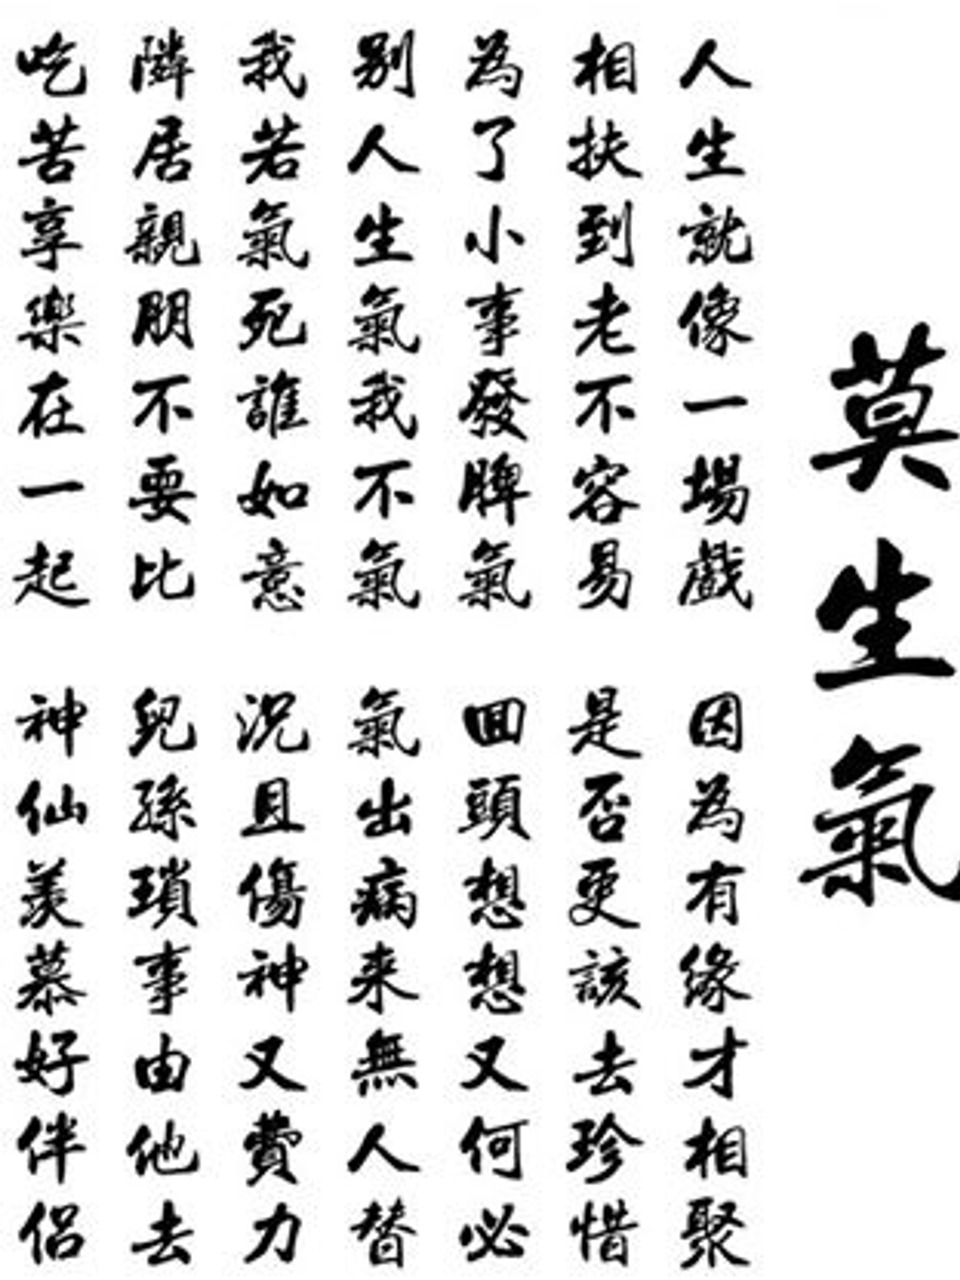 莫生氣
人生就像一場戲
因為有緣才相聚
相扶到老不容易
是否更該去珍惜
為了小事發脾氣
回頭想想又何必
別人生氣我不氣
氣出病來無人替
我若氣死誰如意
況且傷神又費力
隣居親朋不要比
兒孫瑣事由他去
吃苦享樂在一起
神仙羨慕好伴侶